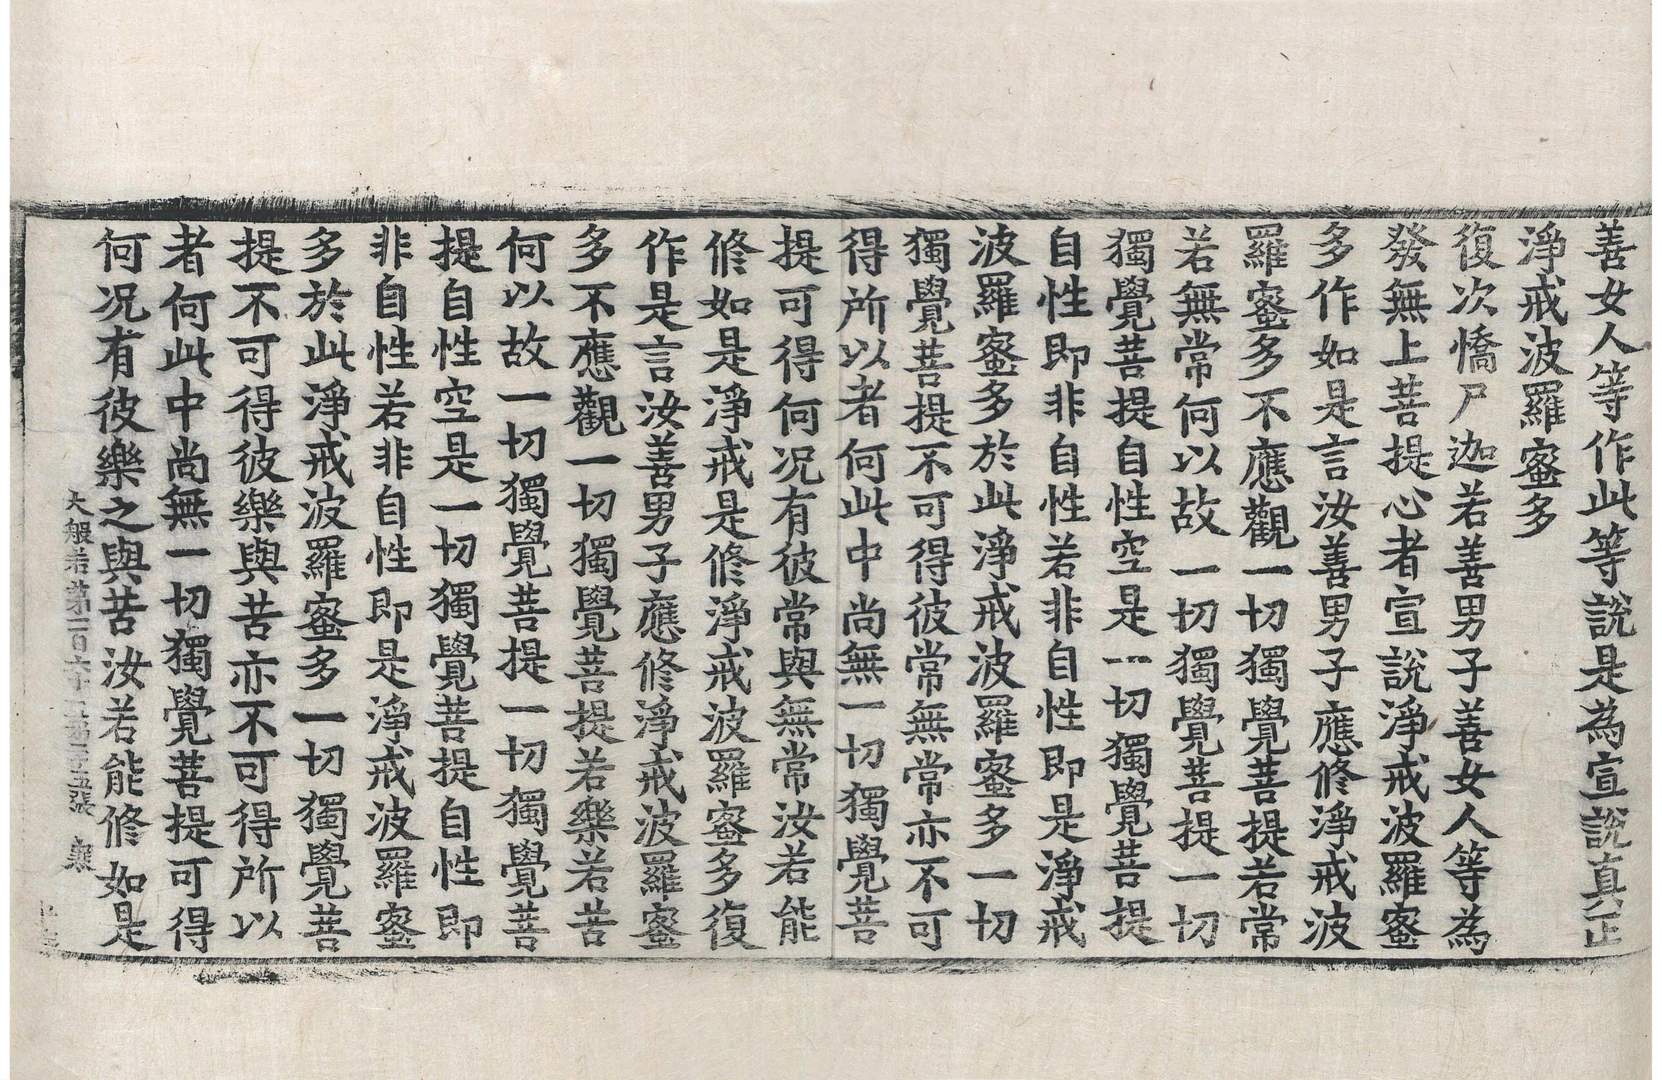 善女人等作此等說是為宣說真正
淨戒波羅蜜多
復次憍尸迦若善男子善女人等為
發無上菩提心者宣說淨戒波羅蜜
多作如是言汝善男子應修淨戒波
羅蜜多不應觀一切獨覺菩提若常
若無常何以故一切獨覺菩提一切
獨覺菩提自性空是一切獨覺菩提
自性即非自性若非自性即是淨戒
波羅蜜多於此淨戒波羅蜜多一切
獨覺菩提不可得彼常無常亦不可
得所以者何此中尚無一切獨覺菩
提可得何況有彼常與無常汝若能
修如是淨戒是修淨戒波羅蜜多復
作是言汝善男子應修淨戒波羅蜜
多不應觀一切獨覺菩提若樂若苦
何以故一切獨覺菩提一切獨覺菩
提自性空是一切獨覺菩提自性即
非自性若非自性即是淨戒波羅蜜
多於此淨戒波羅蜜多一切獨覺菩
提不可得彼樂與苦亦不可得所以
者何此中尚無一切獨覺菩提可得
何况有彼樂之與苦汝若能修如是
大般若第一百六十 第 五張